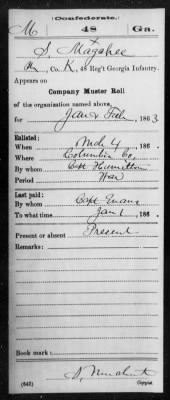 Confederate.
M 48 Ga.
S. Magahee
Co. K, 48 Reg't Georgia Infantry.
Appears on
Company Muster Roll
of the organization named above,
for Jan & Feb, 1863
Enlisted:
When Mch 4, 186
Where Columbia Co.
By whom Capt Hamilton
Period War
Last paid:
By whom Capt Evans
To what time Jan 1, 186
Present or absent Present
Remarks:
Book mark:
(642) Copyist.